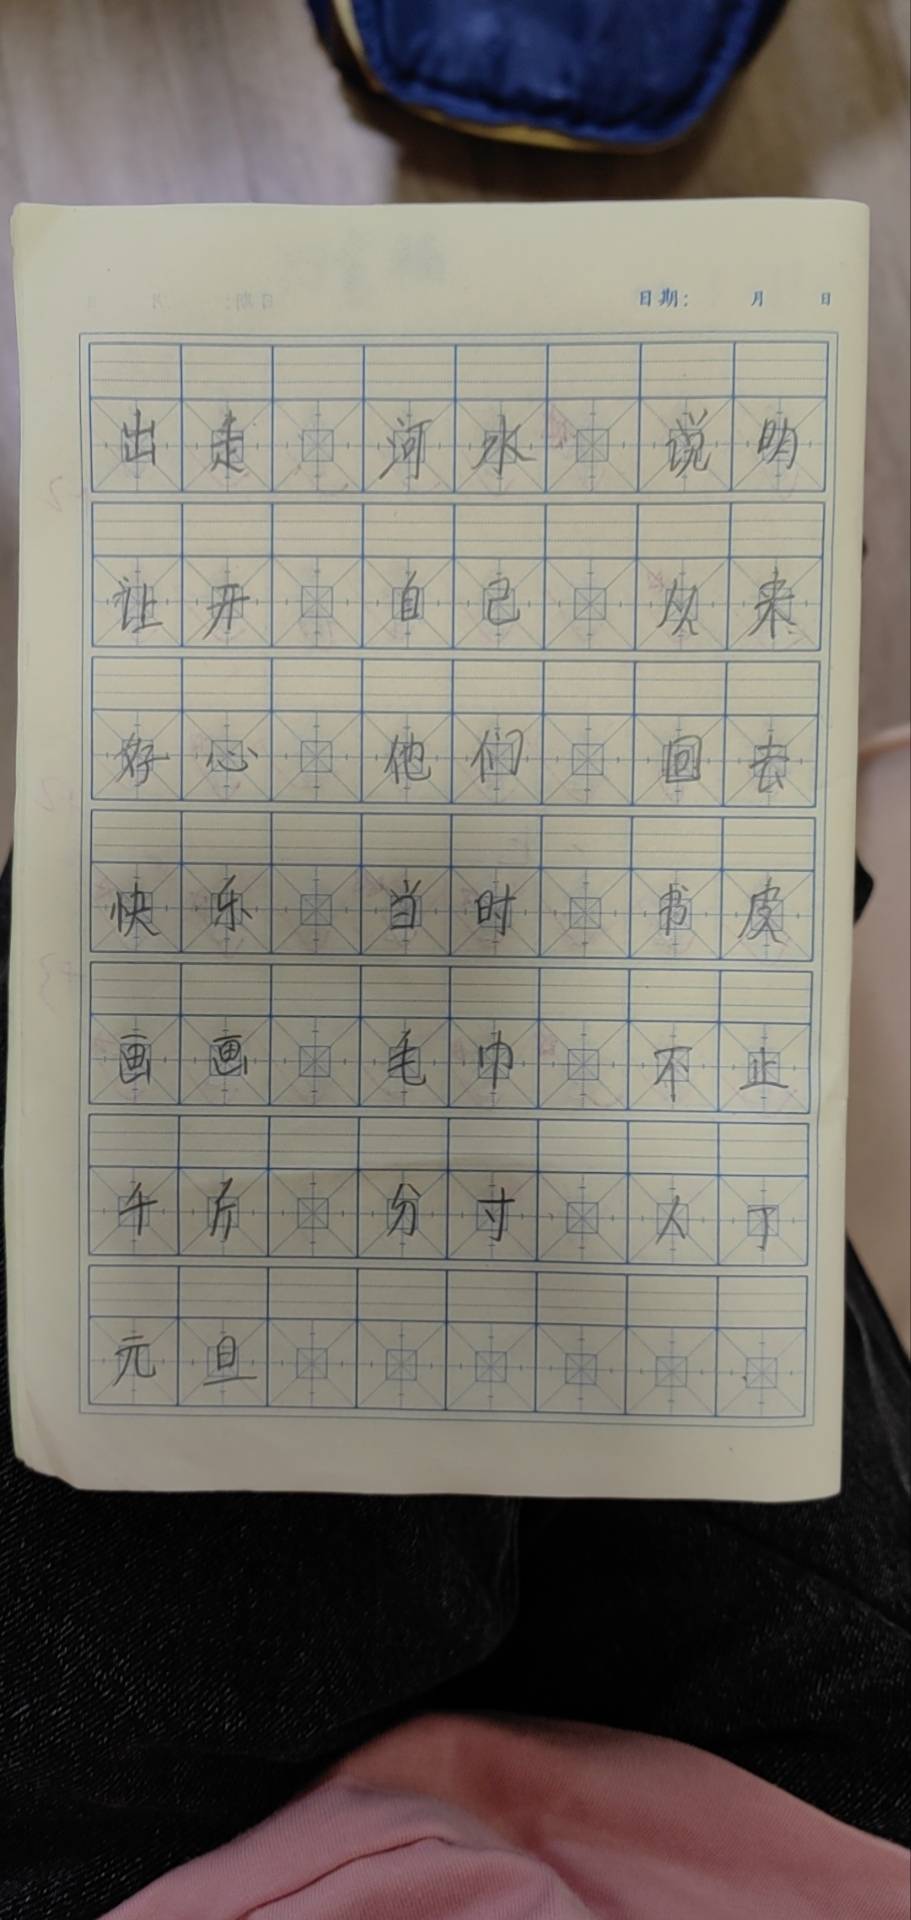 日期： 月 日
出走 河水 说明
让开 自己 从来
好心 他们 回去
快乐 当时 书皮
画画 毛巾 不止
千斤 分寸 人了
元旦